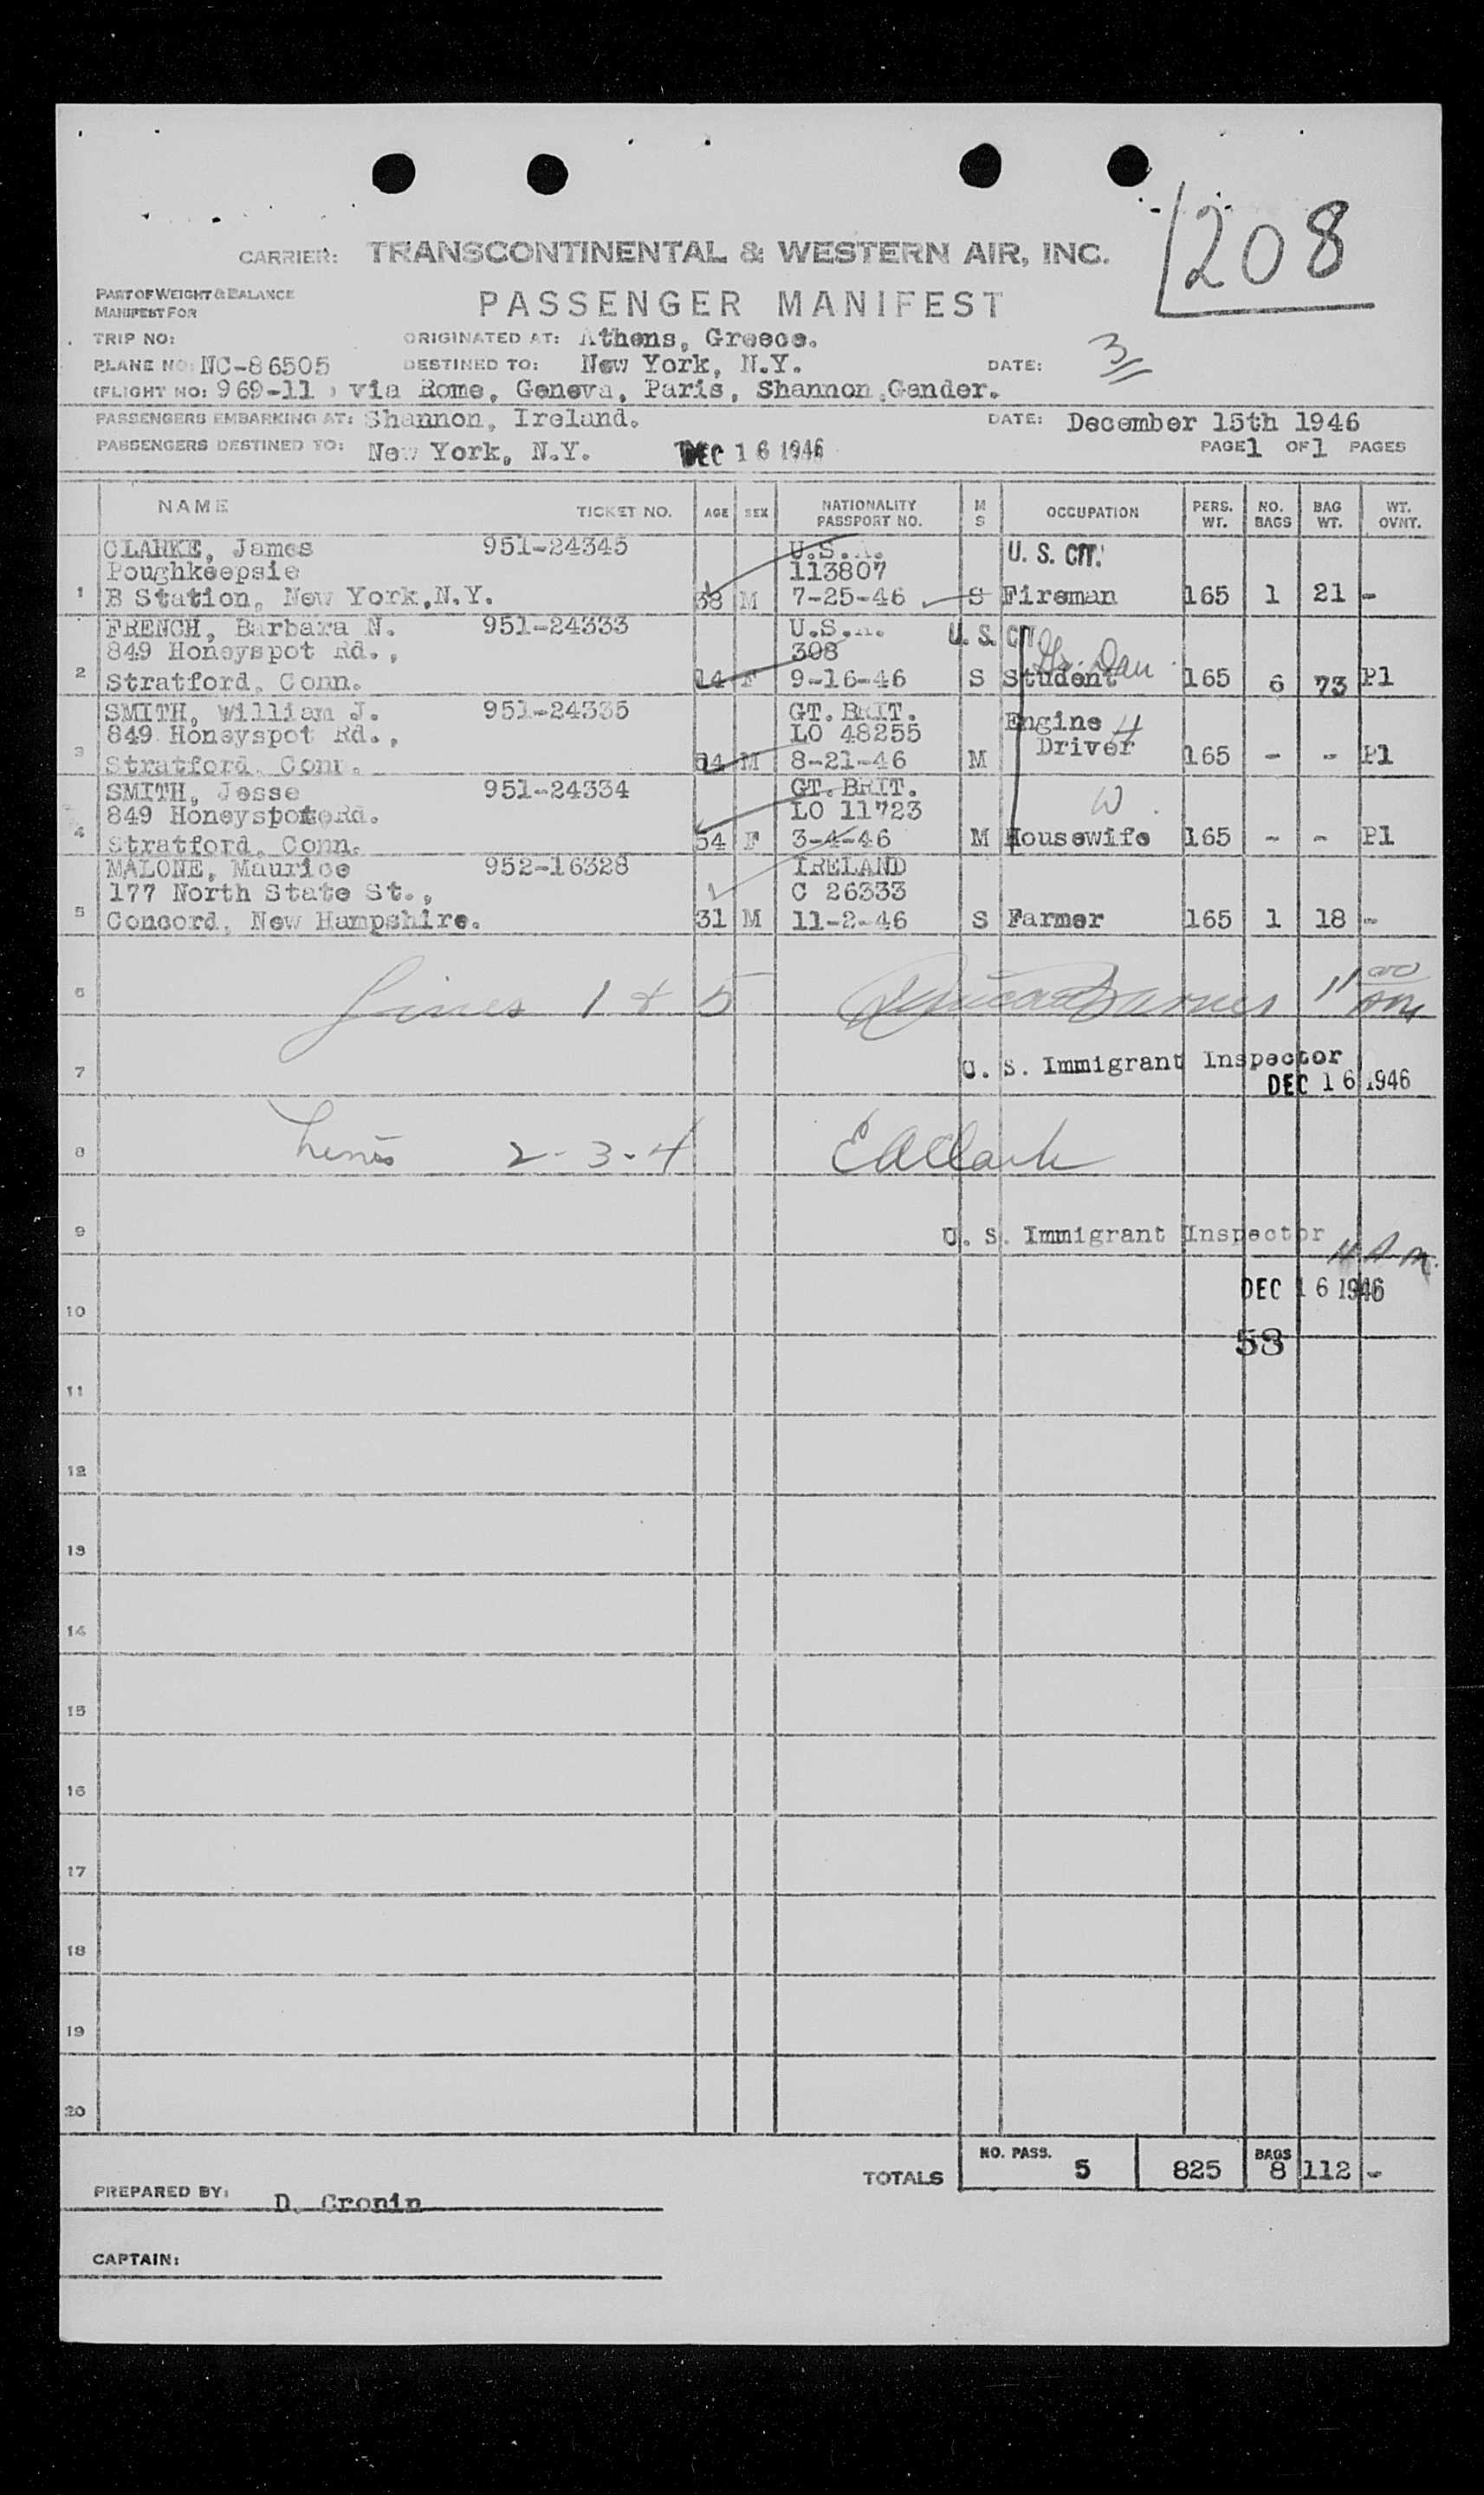 1208
CARRIER: TRANSCONTINENTAL & WESTERN AIR, INC.
PART OF WEIGHT & BALANCE
MANIFEST FOR
PASSENGER MANIFEST
TRIP NO: ORIGINATED AT: Athens, Greece.
PLANE NO: NC-86505 DESTINED TO: New York, N.Y. DATE: 3
(FLIGHT NO: 969-11 ) via Rome, Geneva, Paris, Shannon,Gander.
PASSENGERS EMBARKING AT: Shannon, Ireland. DATE: December 15th 1946
PASSENGERS DESTINED TO: New York, N.Y. DEC 16 1946 PAGE 1 OF 1 PAGES
NAME TICKET NO. AGE SEX NATIONALITY PASSPORT NO. M S OCCUPATION PERS. WT. NO. BAGS BAG WT. WT. OVNT.
CLARKE, James 951-24345 U.S.A. U. S. CIT.
Poughkeepsie 113807
1 B Station, New York,N.Y. 38 M 7-25-46 S Fireman 165 1 21 -
FRENCH, Barbara N. 951-24333 U.S.A. U. S. CIT
849 Honeyspot Rd., 308 Gr. Dau
2 Stratford, Conn. 14 F 9-16-46 S Student 165 6 73 Pl
SMITH, William J. 951-24335 GT. BRIT. Engine H
849 Honeyspot Rd., LO 48255 Driver
3 Stratford, Conn. 54 M 8-21-46 M 165 - - Pl
SMITH, Jesse 951-24334 GT. BRIT.
849 Honeyspot Rd. LO 11723 W
4 Stratford, Conn. 54 F 3-4-46 M Housewife 165 - - Pl
MALONE, Maurice 952-16328 IRELAND
177 North State St., C 26333
5 Concord, New Hampshire. 31 M 11-2-46 S Farmer 165 1 18 -
6 Lines 1 & 5 11 00 AM
7 U. S. Immigrant Inspector
DEC 16 1946
8 Lines 2-3-4 E A Clark
9 U. S. Immigrant Inspector 11 A M.
10 DEC 16 1946
53
11
12
13
14
15
16
17
18
19
20
TOTALS NO. PASS. 5 825 BAGS 8 112 -
PREPARED BY: D. Cronin
CAPTAIN: